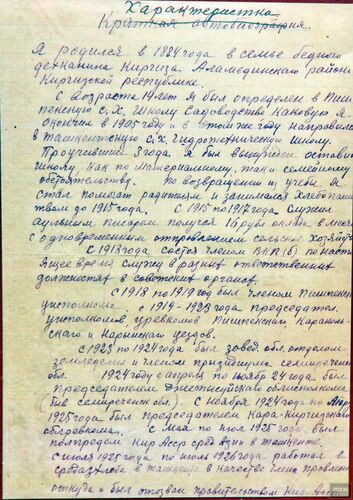 Характеристика
Краткая автобиография.
Я родился в 1884 года в семье бедного
дехканина Киргиза, Аламединского района
Киргизской республики.
С возраста 14 лет я был определен в Пиш-
пекскую с.х. школу Садоводство каковую я
окончил в 1905 году и в этом же году направился
в Ташкентскую с.х. Гидротехническую школу.
Проучившись 3 года, я был вынужден оставить
школу как по материальному, так и семейному
обстоятельству. По возвращении из учебы я
стал помогать родителям и занимался хлебопаше-
ством до 1915 года. С 1915 по 1917 года служил
аульным писарем получая 16 руб оклада в месяц
с одновременным отправлением сельское хозяйство
С 1918 года состоя членом ВКП(б) по насто-
ящее время служу в разных ответственных
должностях в советских органах.
С 1918 по 1919 год был членом Пишпекского
уисполкома. с 1919-1923 года председател.
уисполкомов, уревкомов Пишпекского, Каракол-
ского и Нарынского уездов.
С 1923 по 1924 года был завед. обл. отделом
земледелия и членом президиума, семиречен.
обл. 1924 году с апрель по ноябрь 24 года был
председателем Джетисуйского облисполкома
(быв семиреченск обл.) С ноября 1924 года по Март
1925 года был председателем Кара-киргизского
облревкома. С Мая по июл 1925 года был
полпредом Кир Асср сред Азии в Ташкенте.
С июля 1925 года по июль 1926 года работал в
средазхлебе в Ташкенте в качестве члена правления
откуда и был отозван правительством Кир. Асср